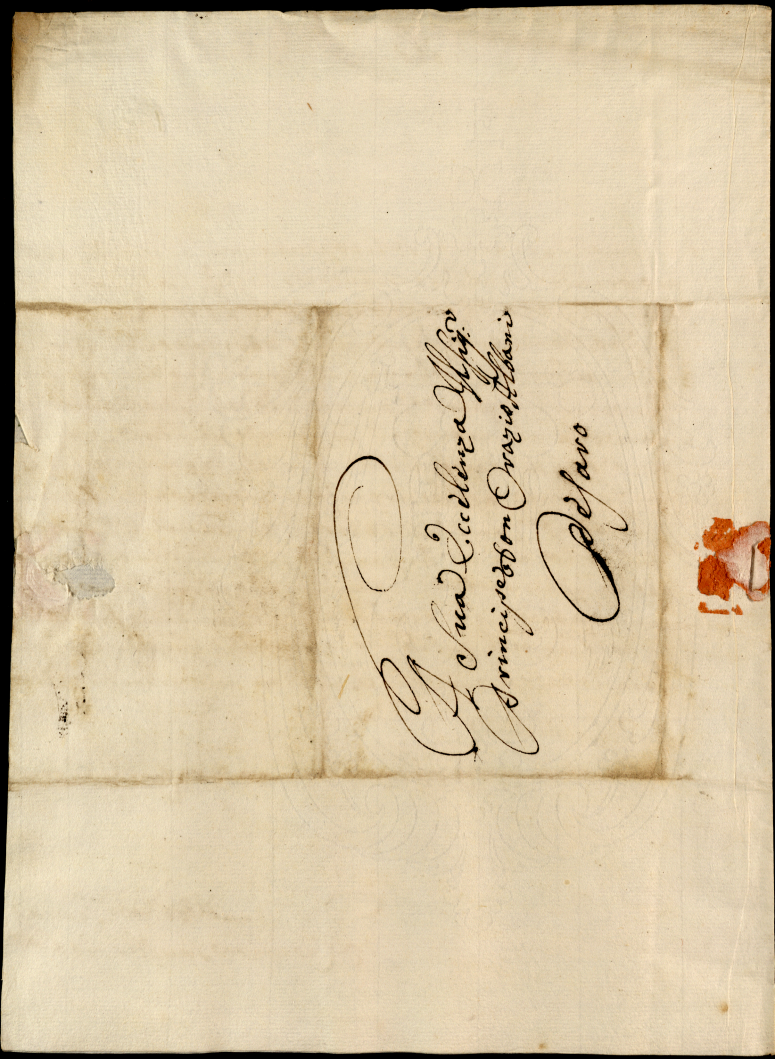 A Sua Eccellenza Il Sig.r
Principe Don Orazio Albani
Pesaro